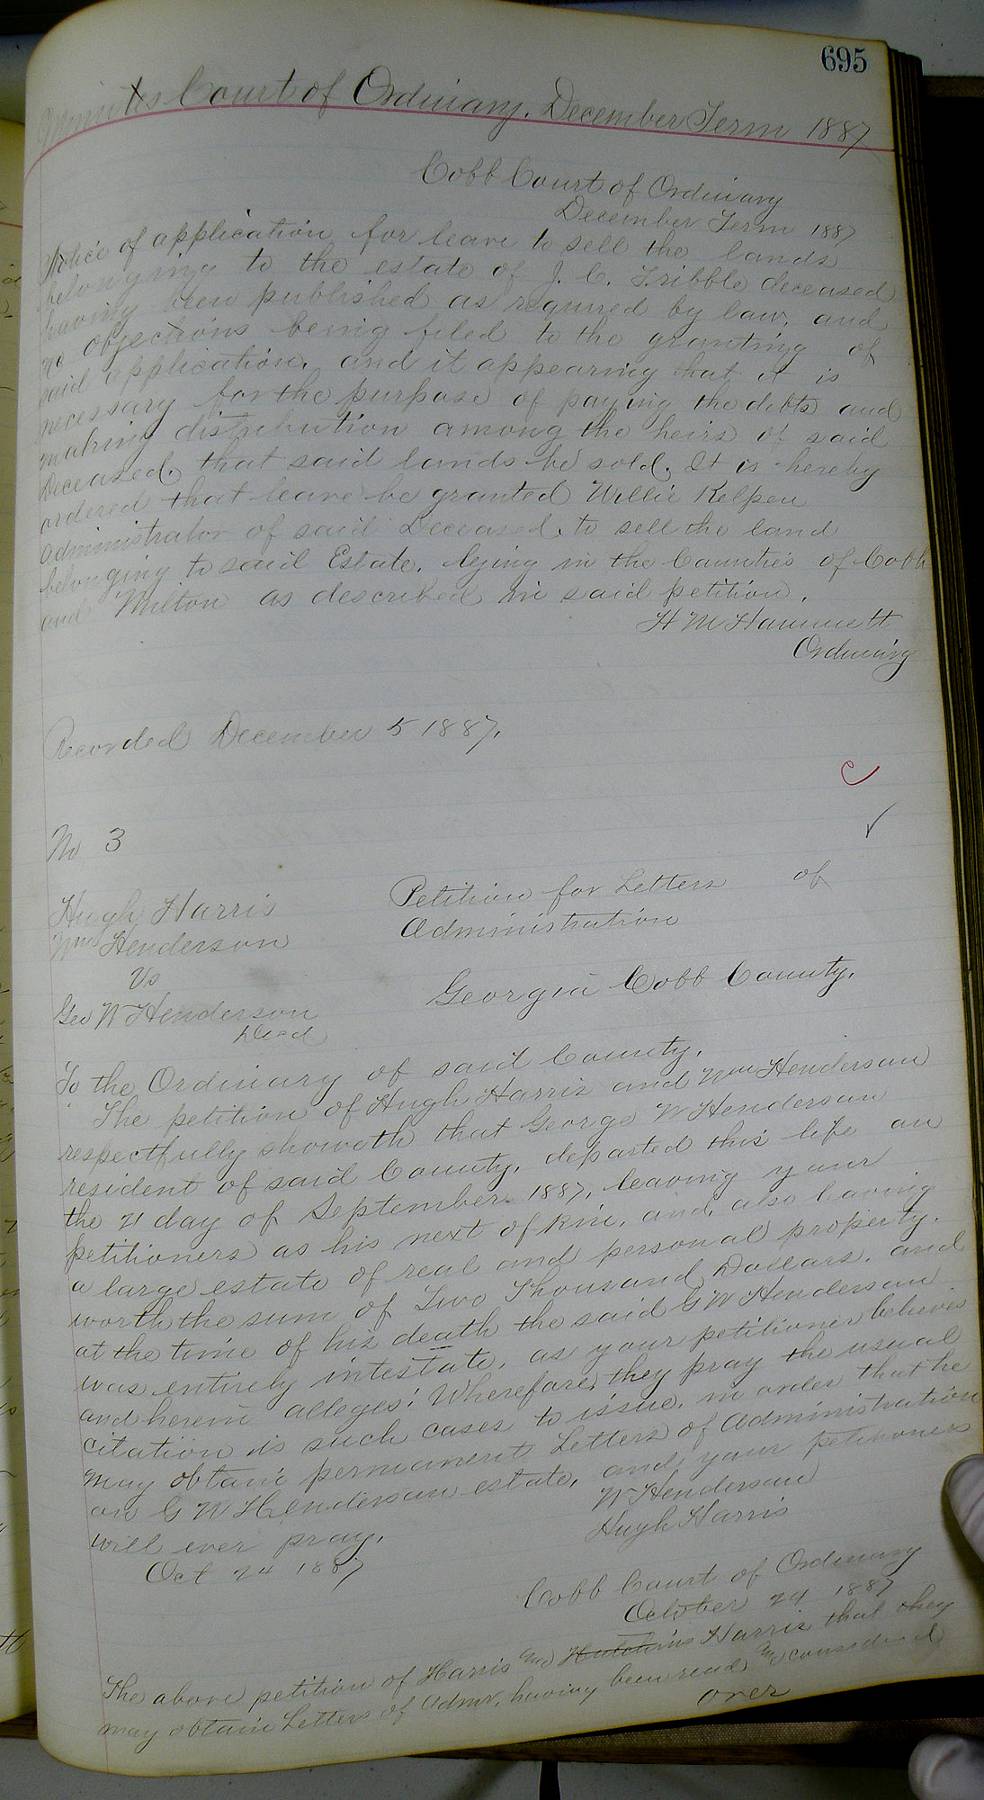 695
Minutes Court of Ordinary. December Term 1887
Cobb Court of Ordinary
December Term 1887
Notice of application for leave to sell the lands
belonging to the estate of J. C. Tribble deceased
having been published as required by law, and
no objections being filed to the granting of
said application, and it appearing that it is
necessary for the purpose of paying the debts and
making distribution among the heirs of said
Deceased, that said lands be sold. It is hereby
ordered that leave be granted Willie
Administrator of said Deceased, to sell the land
belonging to said Estate. lying in the Counties of Cobb
and Milton as described in said petition.
H M Hammett
Ordinary
Recorded December 5 1887.
No 3
Hugh Harris
Wm Henderson
Vs
Geo W Henderson
Decd
Petition for Letters of
Administration
Georgia Cobb County.
To the Ordinary of said County.
The petition of Hugh Harris and Wm Henderson
respectfully showeth that George W Henderson
resident of said County, departed this life on
the 21 day of September 1887, leaving your
petitioners as his next of kin, and also leaving
a large estate of real and personal property.
worth the sum of Two Thousand Dollars. and
at the time of his death the said G W Henderson
was entirely intestate, as your petitioner believes
and herein alleges: Wherefore, they pray the usual
citation is such cases to issue, in order that he
may obtain permanent Letters of Administration
on G W Henderson estate, and your petitioners
will ever pray.
Oct 24 1887
W Henderson
Hugh Harris
Cobb Court of Ordinary
October 24 1887
The above petition of Harris and Harris that they
may obtain Letters of Admr, having been read and considered
over